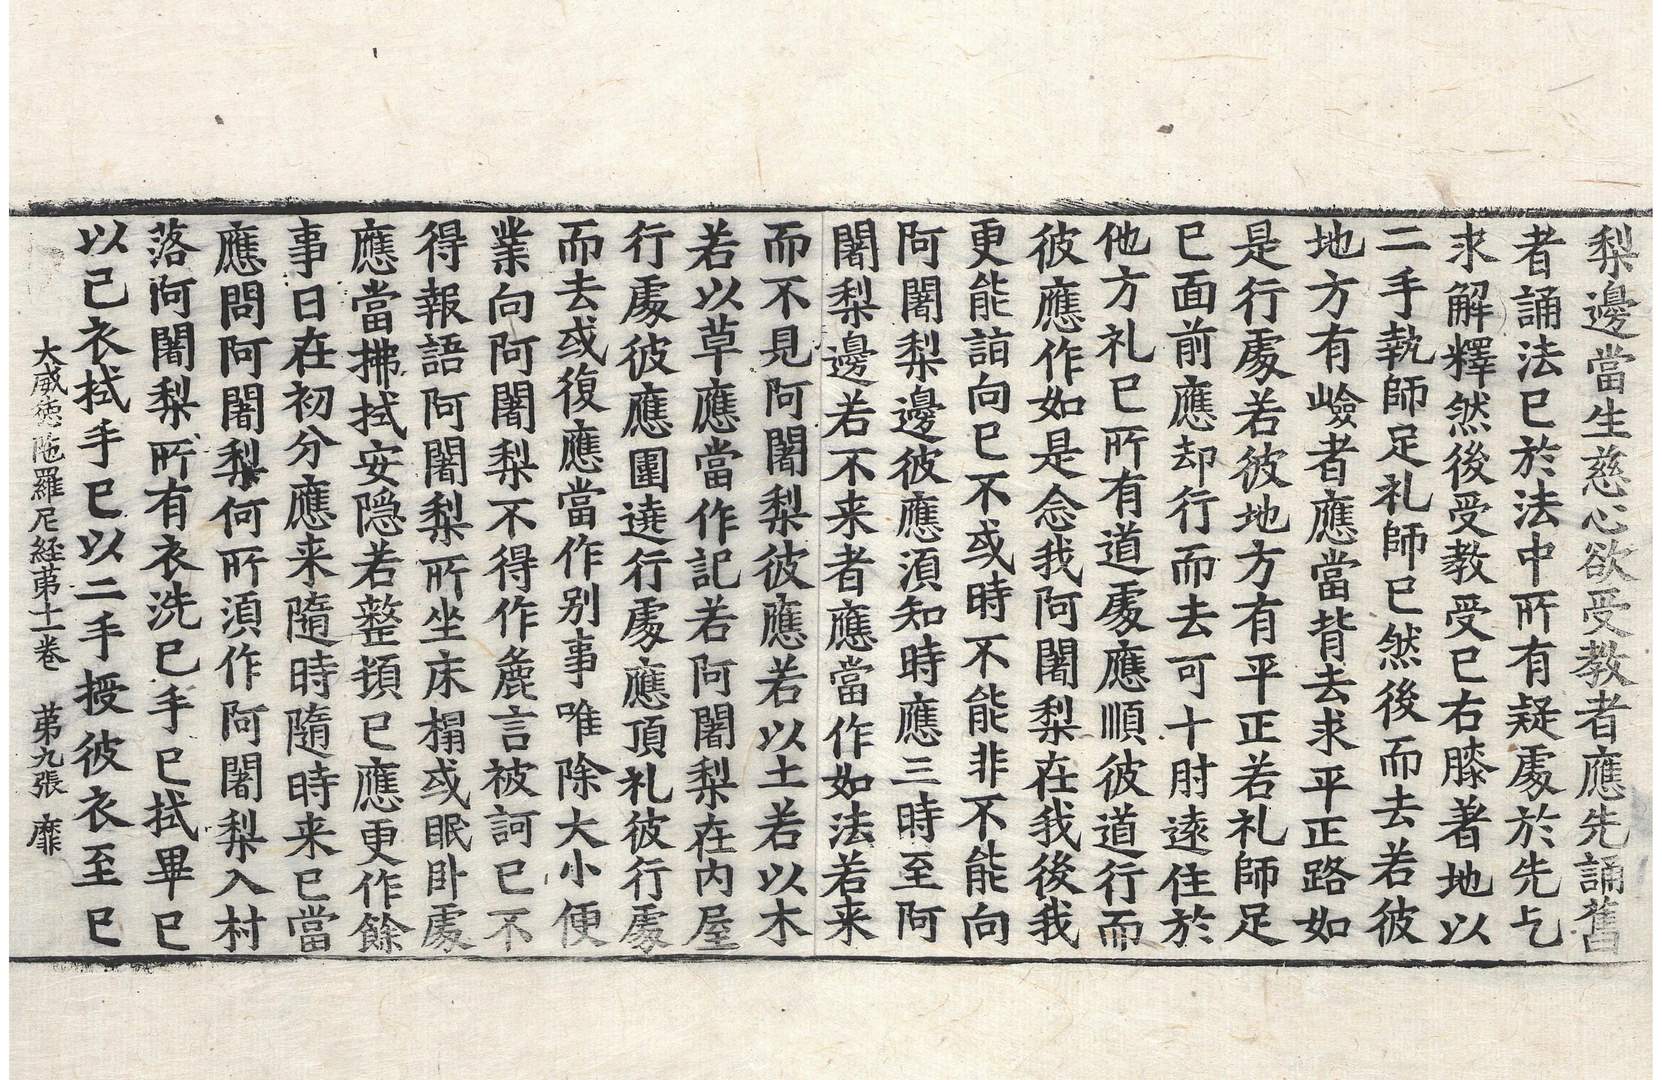 梨邊當生慈心欲受教者應先誦舊
者誦法已於法中所有疑處於先乞
求解釋然後受教受已右膝著地以
二手執師足礼師已然後而去若彼
地方有嶮者應當背去求平正路如
是行處若彼地方有平正若礼師足
已面前應却行而去可十肘遠住於
他方礼已所有道處應順彼道行而
彼應作如是念我阿闍梨在我後我
更能詣向已不或時不能非不能向
阿闍梨邊彼應須知時應三時至阿
闍梨邊若不来者應當作如法若来
而不見阿闍梨彼應若以土若以木
若以草應當作記若阿闍梨在内屋
行處彼應圍遶行處應頂礼彼行處
而去或復應當作别事唯除大小便
業向阿闍梨不得作麁言被訶已不
得報語阿闍梨所坐床榻或眠卧處
應當拂拭安隱若整頓已應更作餘
事日在初分應来隨時隨時来已當
應問阿闍梨何所須作阿闍梨入村
落阿闍梨所有衣洗已手已拭畢已
以己衣拭手已以二手授彼衣至已
大威德陁羅尼経苐十一卷 苐九張 靡